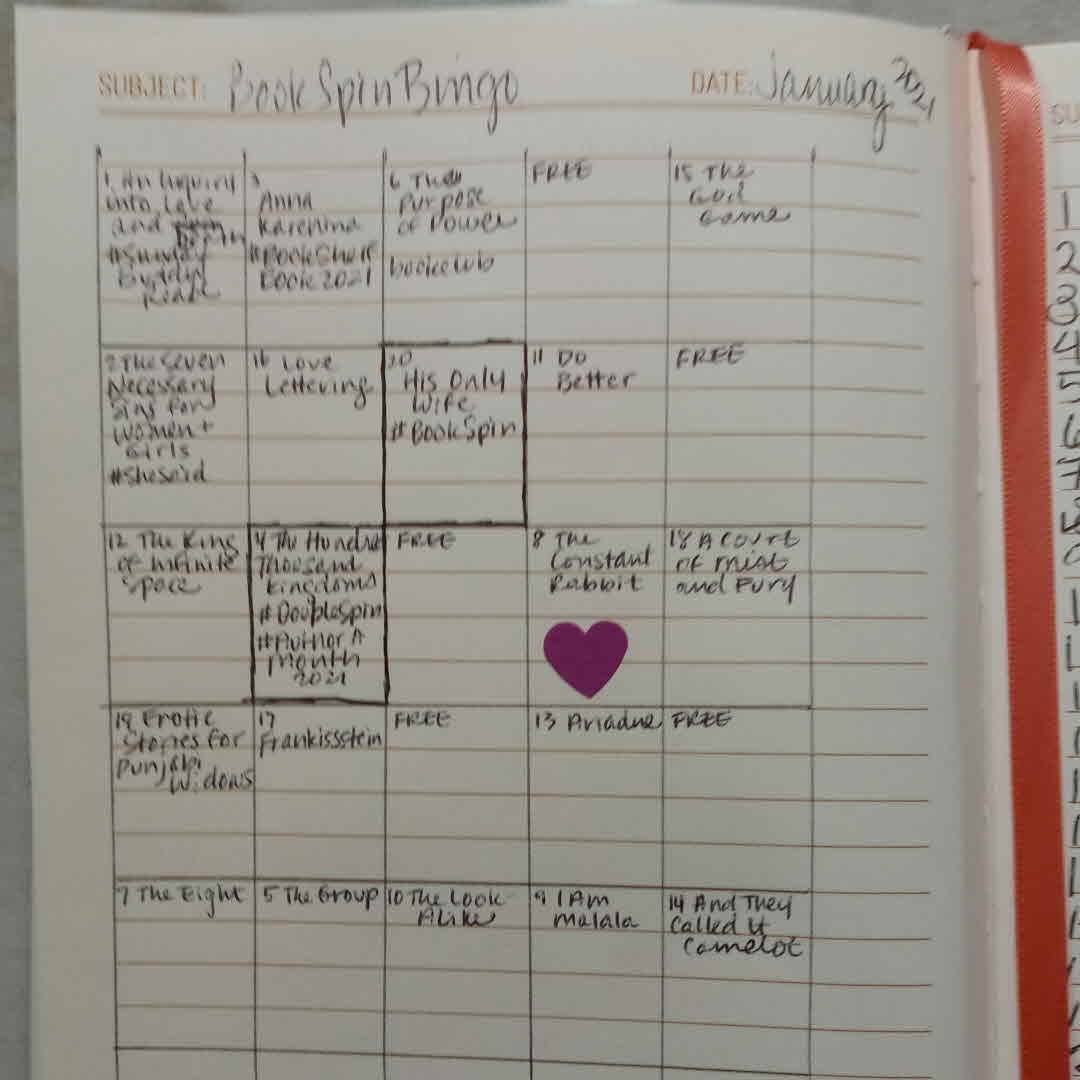 SUBJECT: BookSpinBingo
DATE: January 2021
1 An Inquiry
into Love
and Death
#Sunday
Buddy
Read
3
Anna
Karenina
#BookShelf
Book 2021
6 The
Purpose
of Power
bookclub
FREE
15 The
God
Game
2 The Seven
Necessary
Sins For
Women +
Girls
#SheSaid
16 Love
Lettering
20
His Only
Wife
#BookSpin
11 Do
Better
FREE
12 The King
of Infinite
Space
4 The Hundred
Thousand
Kingdoms
#DoubleSpin
#Author A
Month
2021
FREE
8 The
Constant
Rabbit
18 A Court
of Mist
and Fury
19 Erotic
Stories for
Punjabi
Widows
17
Frankissstein
FREE
13 Ariadne
FREE
7 The Eight
5 The Group
10 The Look-
Alike
9 I Am
Malala
14 And They
Called It
Camelot
SU
1
2
3
4
5
6
7
8
9